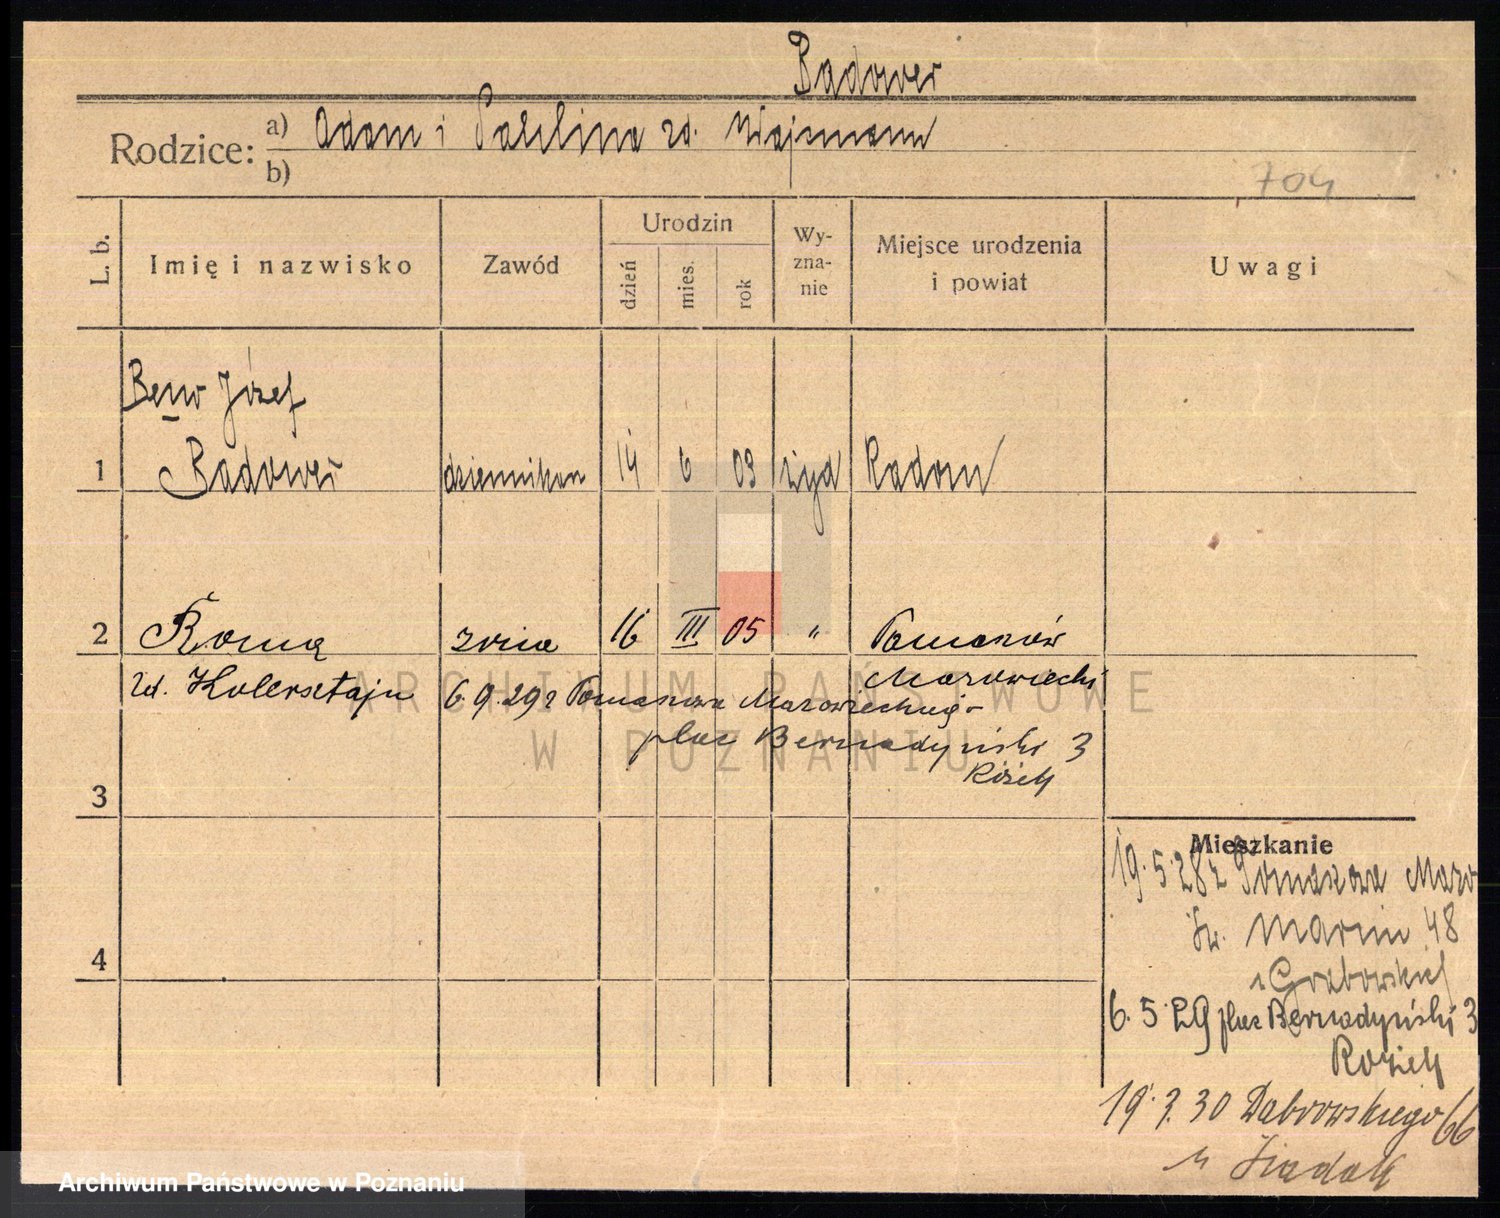 Bądower
Rodzice:
a) Adam i Paulina zd. Wajsmann
b)
704
L. b.
Imię i nazwisko
Zawód
Urodzin
dzień
mies.
rok
Wy-
zna-
nie
Miejsce urodzenia
i powiat
Uwagi
Józef
1 Badower dziennikarz 14 6 03 żyd Radom
2 Roma żona 16 III 05 " Tomaszów
Mazowiecki
zd. 6.9.29 z Tomaszowa Mazowieckiego
plac Bernadyński 3
3
Mieszkanie
19.5.28 z Tomaszowa Mazo
św. Marcin 48
4
u Grabowskiej
6. 5. 29 plac Bernadyński 3
19.3.30 Dąbrowskiego 66
ARCHIWUM PAŃSTWOWE
W POZNANIU
Archiwum Państwowe w Poznaniu